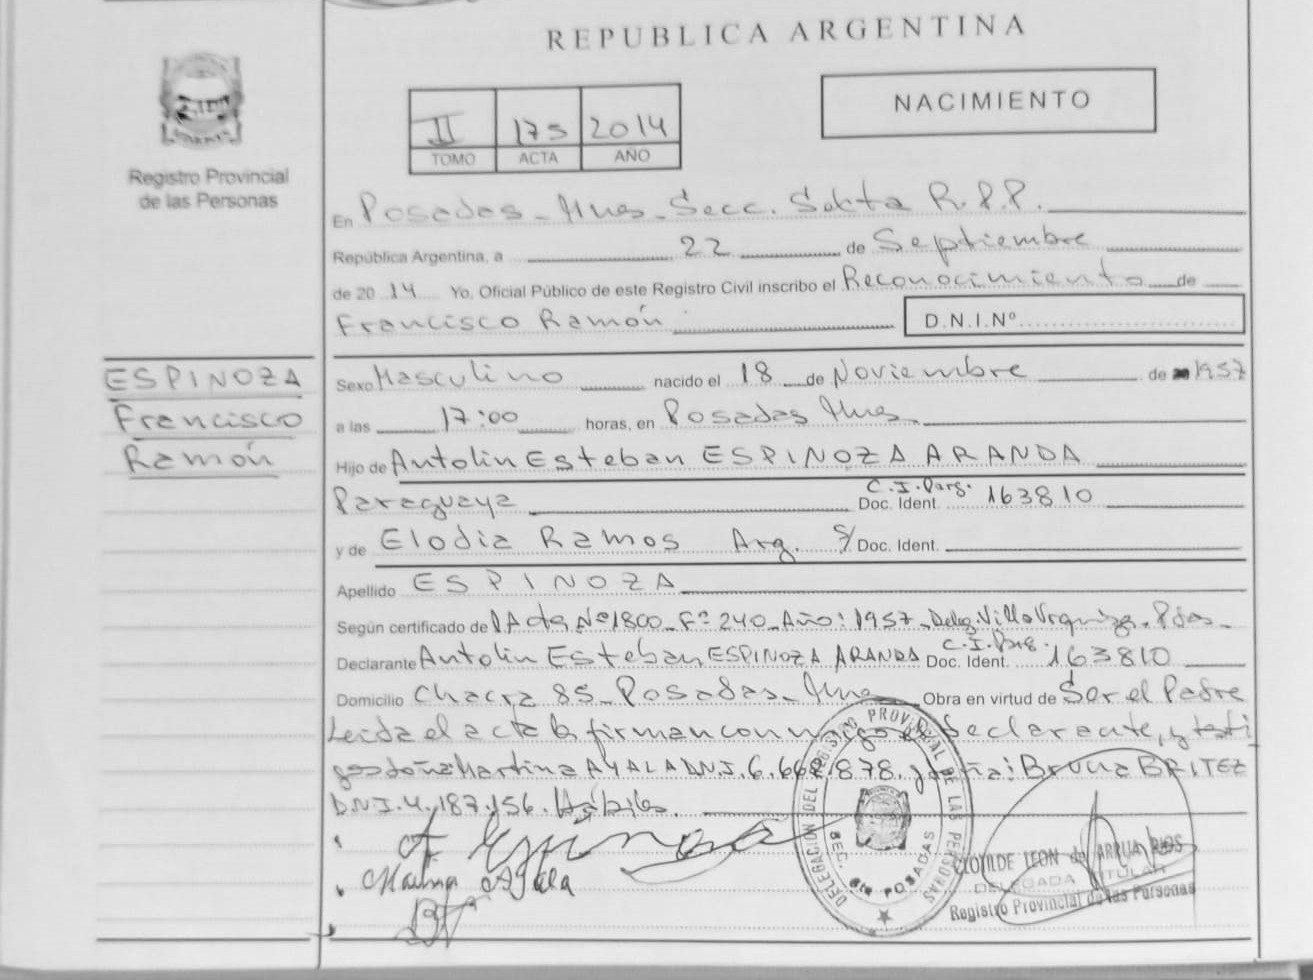 REPUBLICA ARGENTINA
NACIMIENTO
II 175 2014
TOMO ACTA AÑO
Registro Provincial
de las Personas
En Posadas - Mnes - Secc. Sexta R.P.P.
República Argentina, a 22 de Septiembre
de 2014 Yo, Oficial Público de este Registro Civil inscribo el Reconocimiento de
Francisco Ramón D.N.I.Nº
ESPINOZA
Francisco
Ramón
Sexo Masculino nacido el 18 de Noviembre de 1957
a las 17:00 horas, en Posadas Mnes
Hijo de Antolin Esteban ESPINOZA ARANDA
Paraguaya C.I. Parg. Doc. Ident. 163810
y de Elodia Ramos Arg. S/ Doc. Ident.
Apellido ESPINOZA
Según certificado de Acta Nº 1800 - Fº 240 - Año: 1957 - Deleg. Villa Urquiza - Pdas -
Declarante Antolin Esteban ESPINOZA ARANDA C.I. Parg. Doc. Ident. 163810
Domicilio Chacra 85 - Posadas - Mnes Obra en virtud de Ser el Padre
Leida el acta la firman conmigo el Declarante, y testi
gos doña Martina AYALA D.N.I. 6.668.878. y doña: Bruna BRITEZ
D.N.I. 4.187.156. Hábiles.
DELEGACION DEL REGISTRO PROVINCIAL DE LAS PERSONAS
SEC. 6ta POSADAS
CLOTILDE LEON de ARRUA RIOS
DELEGADA TITULAR
Registro Provincial de las Personas